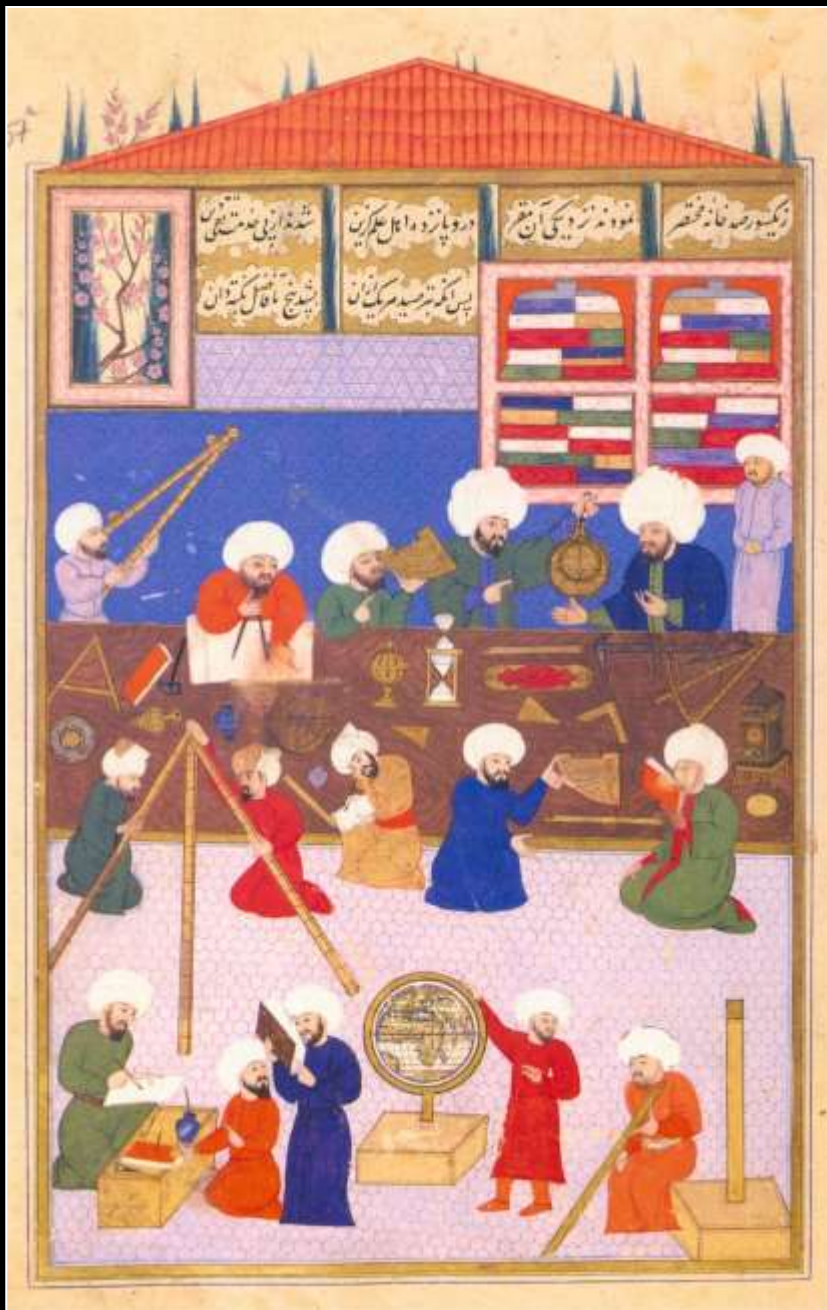 زیکسو رصد خانه مختصر نمودند نزدیکی آن مقر درو پانزده اهل علم کزین شدند از پی خدمت تقی دین
پس انکه بترصید هر یک ازان بشد پنج تا فاضل نکته دان